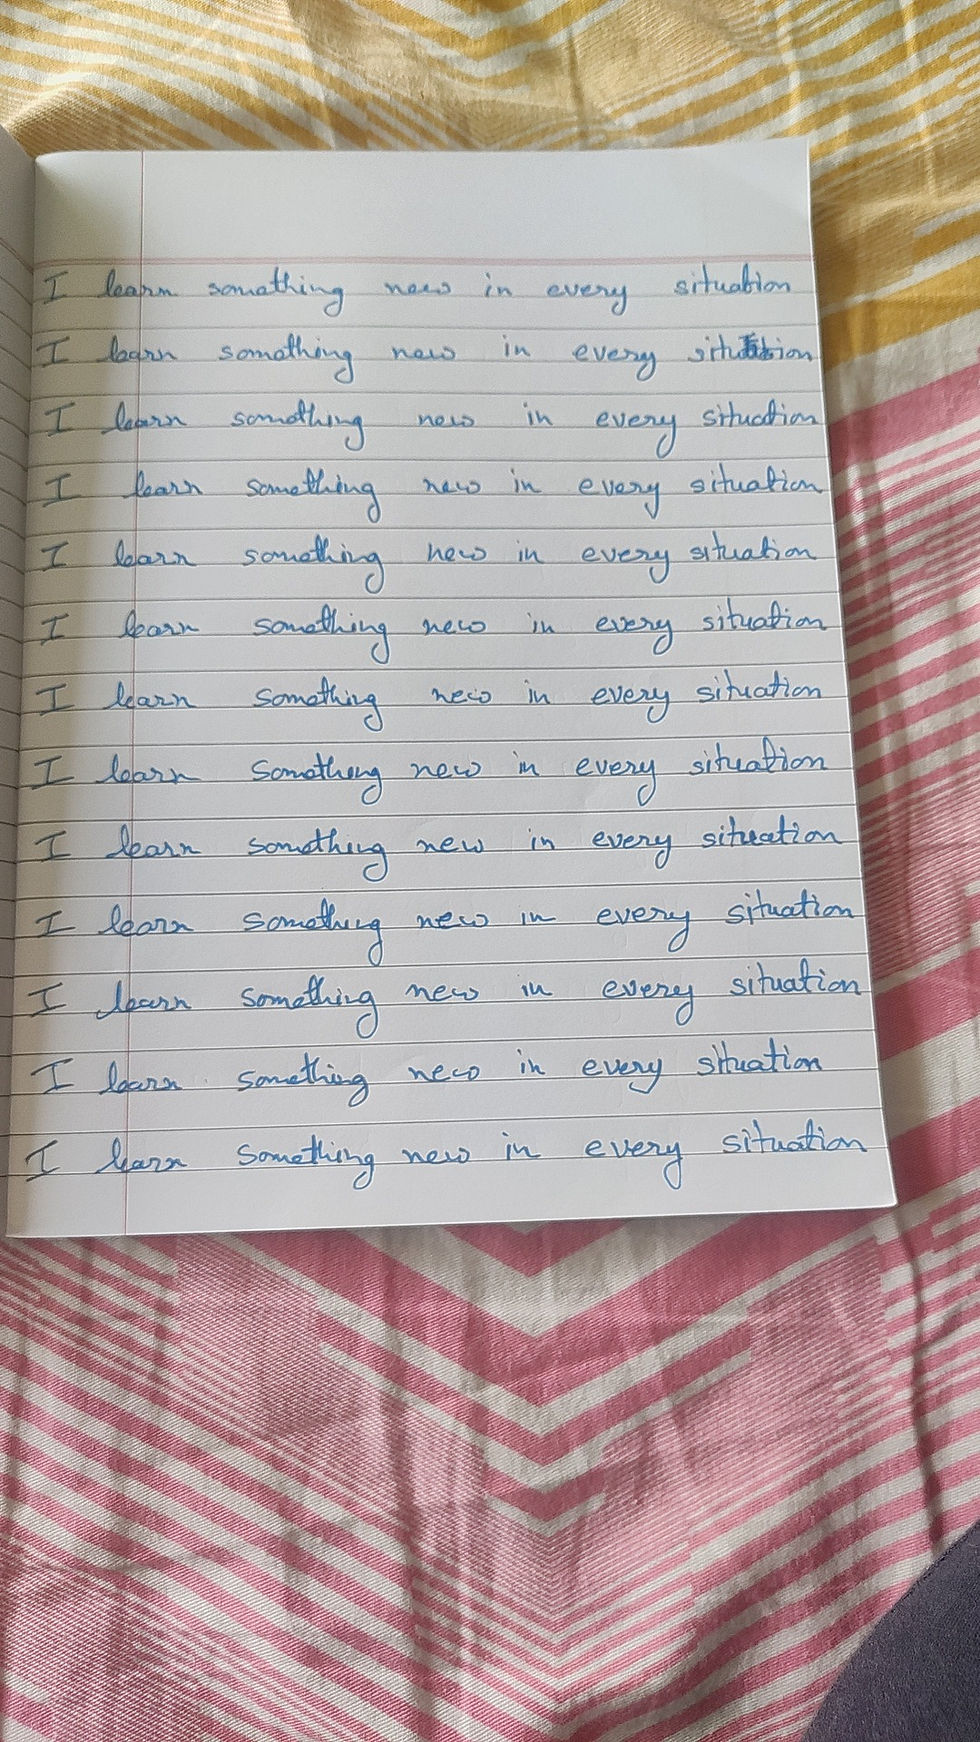 I learn something new in every situation
I learn something new in every situation
I learn something new in every situation
I learn something new in every situation
I learn something new in every situation
I learn something new in every situation
I learn something new in every situation
I learn something new in every situation
I learn something new in every situation
I learn something new in every situation
I learn something new in every situation
I learn something new in every situation
I learn something new in every situation